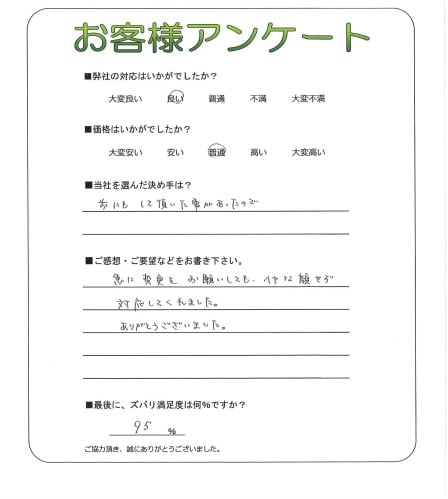 お客様アンケート
■弊社の対応はいかがでしたか？
大変良い 良い 普通 不満 大変不満
■価格はいかがでしたか？
大変安い 安い 普通 高い 大変高い
■当社を選んだ決め手は？
前にも して頂いた事があったので
■ご感想・ご要望などをお書き下さい。
急に変更をお願いしても、イヤな顔せず
対応してくれました。
ありがとうございました。
■最後に、ズバリ満足度は何%ですか？
95 %
ご協力頂き、誠にありがとうございました。